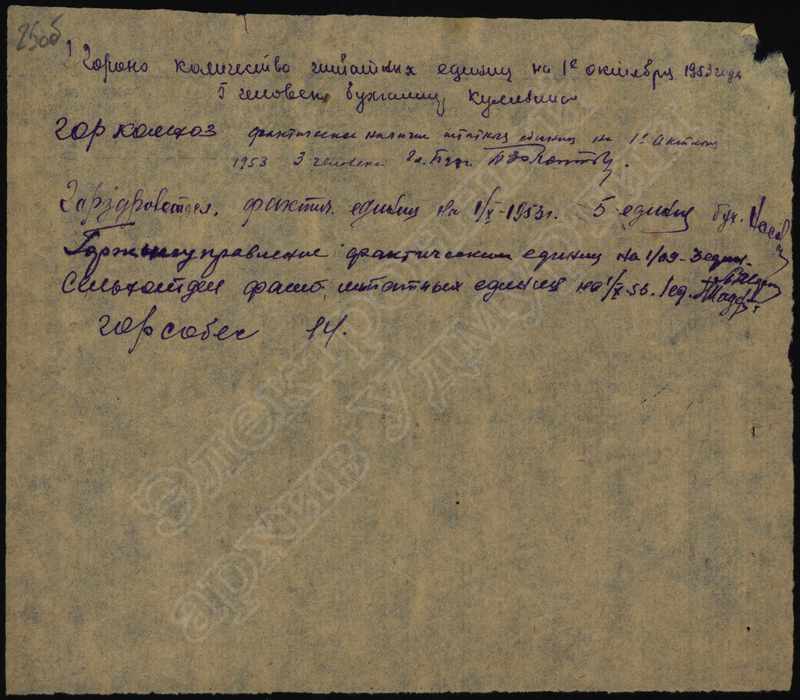 25об
1 Гороно количество штатных единиц на 1е октября 1953 года
5 человек бухгалтер
Горкомхоз фактическое наличие штатных единиц на 1е
1953 3 человека Гл. Бух.
Горздравотдел. фактич. единиц на 1/X-1953г. 5 единиц бух.
управление фактическии единиц на 1/09-3 един.
Сельхозотдел факт. штатных единиц на 1/X-53. 1 ед.
Горсобес 14.
Электронный
архив Удмуртии